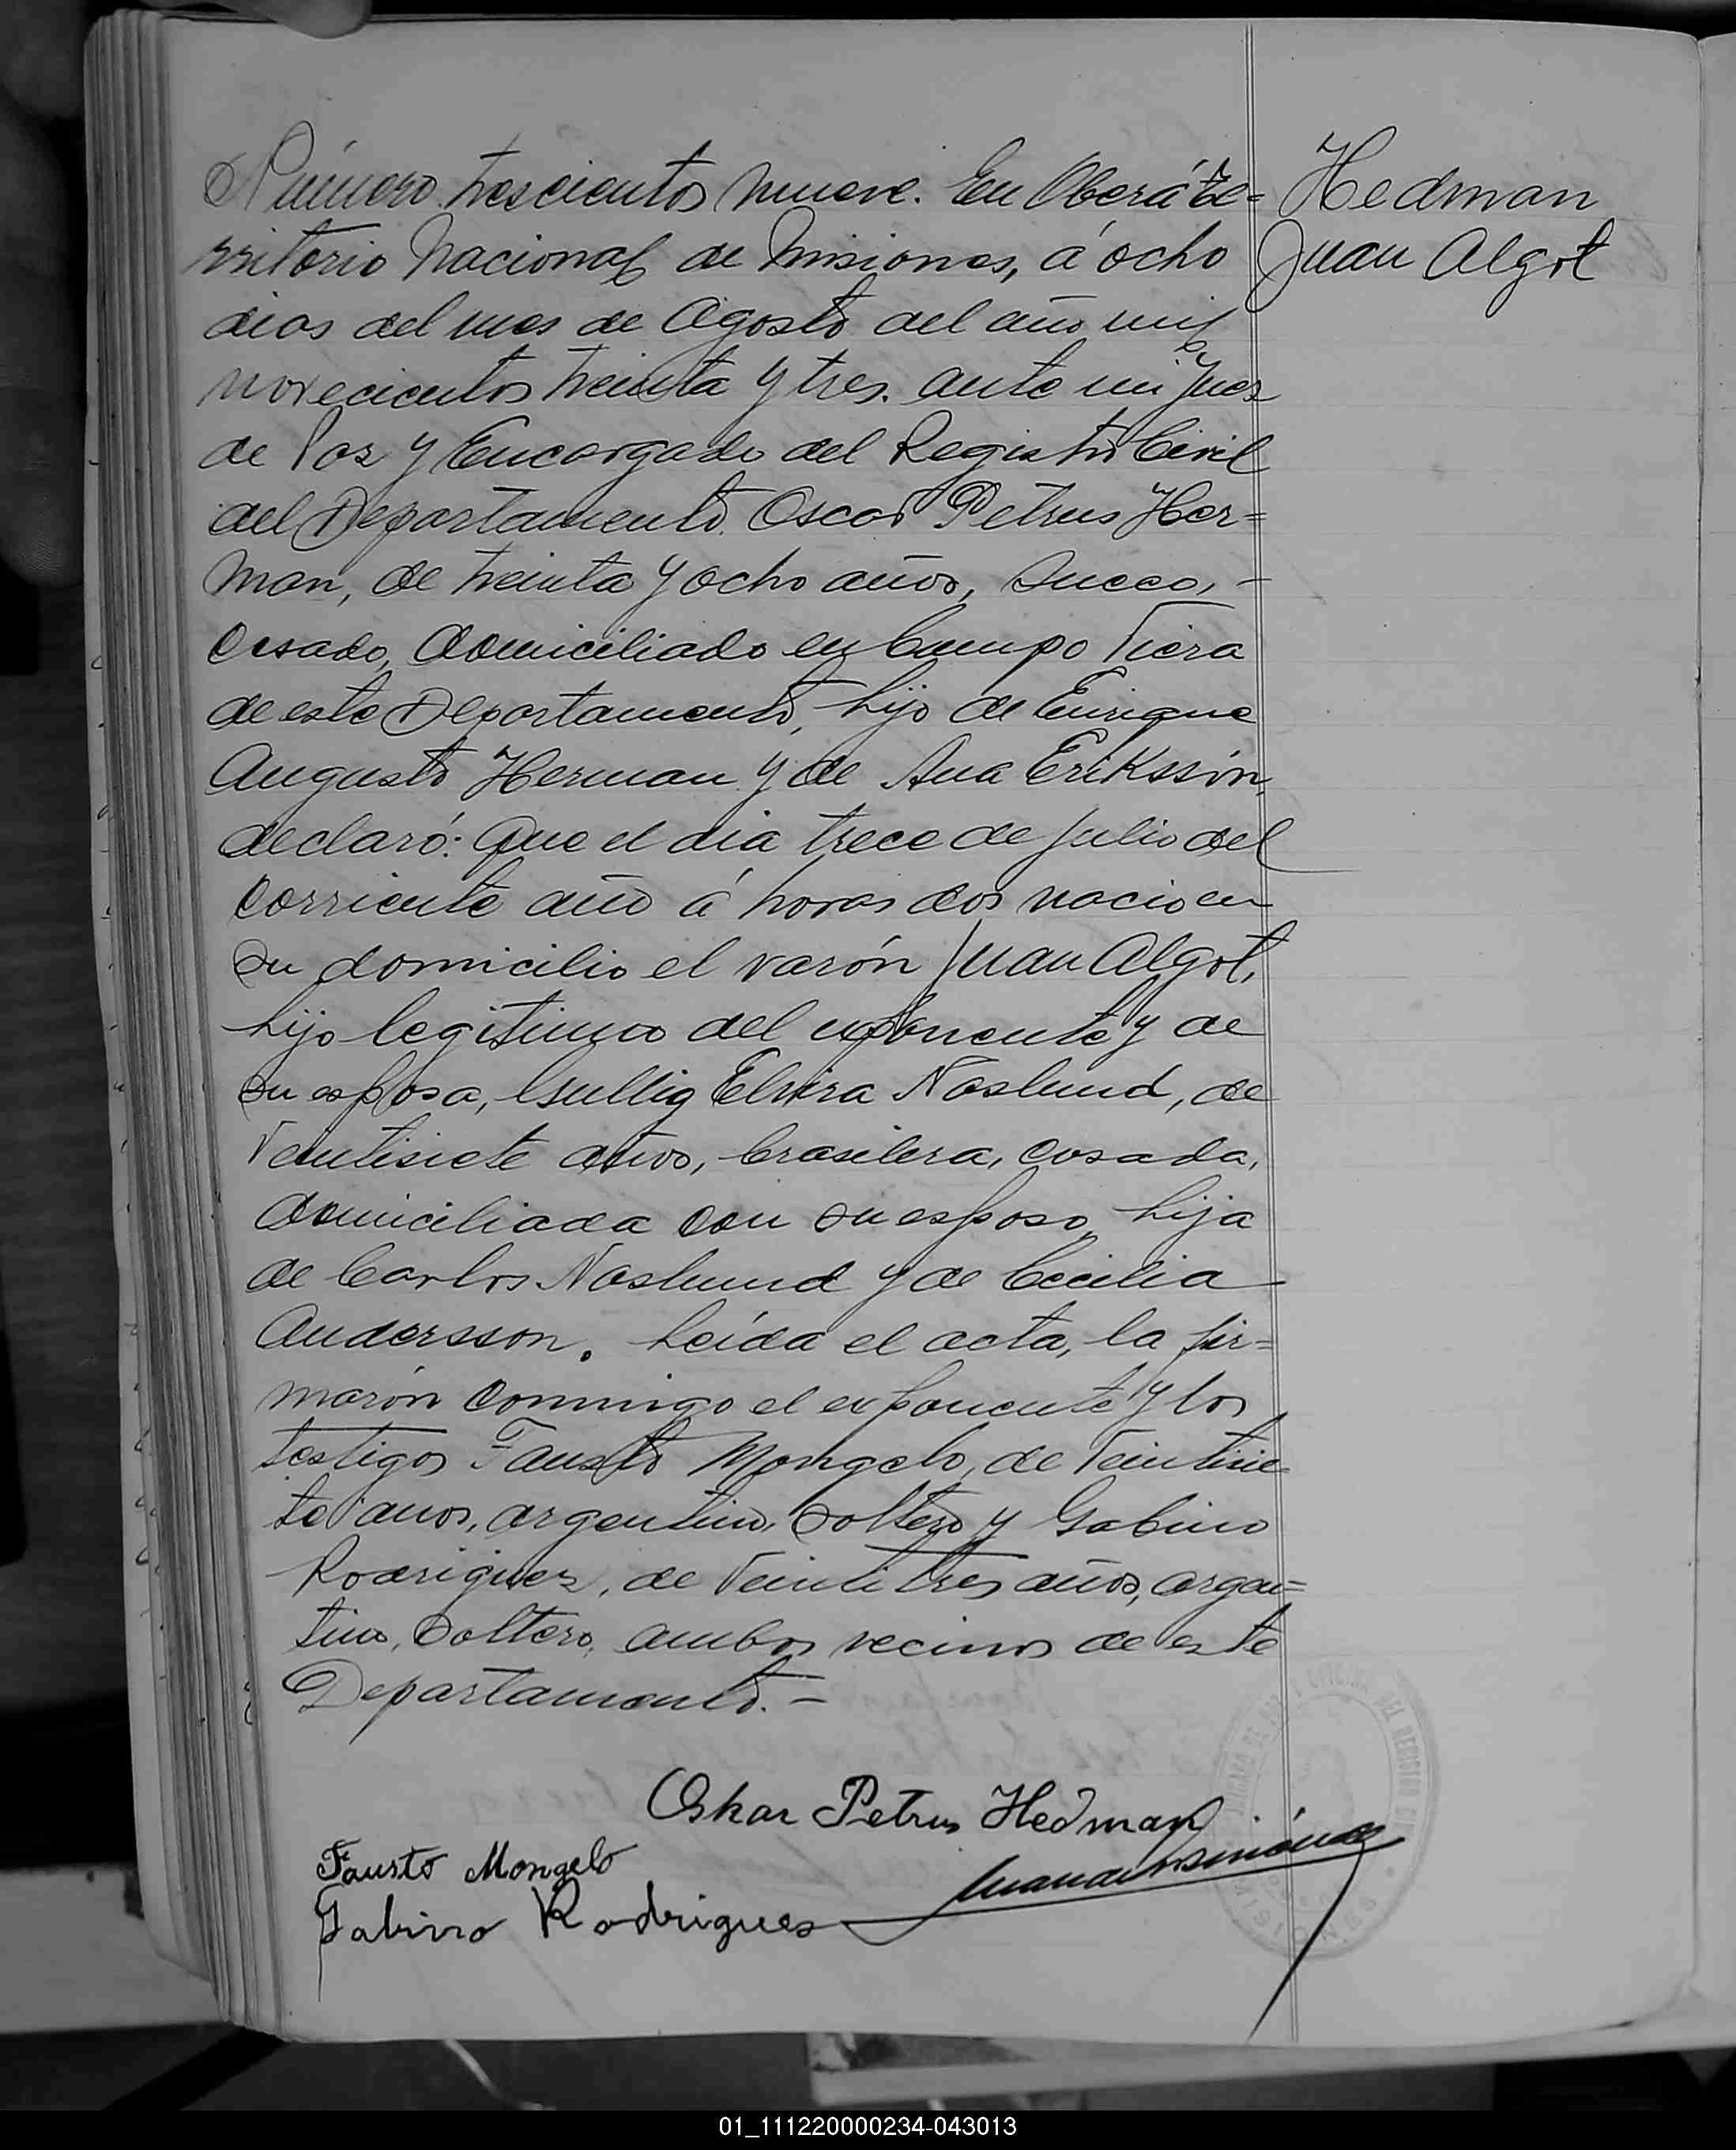 Número trescientos nueve. En Oberá te=
rritorio Nacional de Misiones, á ocho
dias del mes de Agosto del año mil
novecientos treinta y tres. ante mi Juez
de Paz y Encargado del Registro Civil
del Departamento. Oscar Petrus Her=
man, de treinta y ocho años, sueco, -
casado, domiciliado en Campo Viera
de este Departamento, hijo de Enrique
Augusto Herman y de Ana Erikssón,
declaró: Que el dia trece de Julio del
corriente año á horas dos nacio en
su domicilio el varón Juan Algot,
hijo legitimo del exponente y de
su esposa, Gullig Elvira Naslund, de
veintisiete años, brasilera, casada,
domiciliada con su esposo, hija
de Carlos Naslund y de Cecilia
Andersson. Leída el acta, la fir=
marón conmigo el exponente y los
testigos Fausto Mongelo, de veintisie
te anos, argentino, soltero y Gabino
Rodriguez, de veintitres años, argen=
tino, soltero, ambos vecinos de este
Departamento. -
Hedman
Juan Algot
Oskar Petrus Hedman
Fausto Mongelo
Gabino Rodrigues
01_111220000234-043013